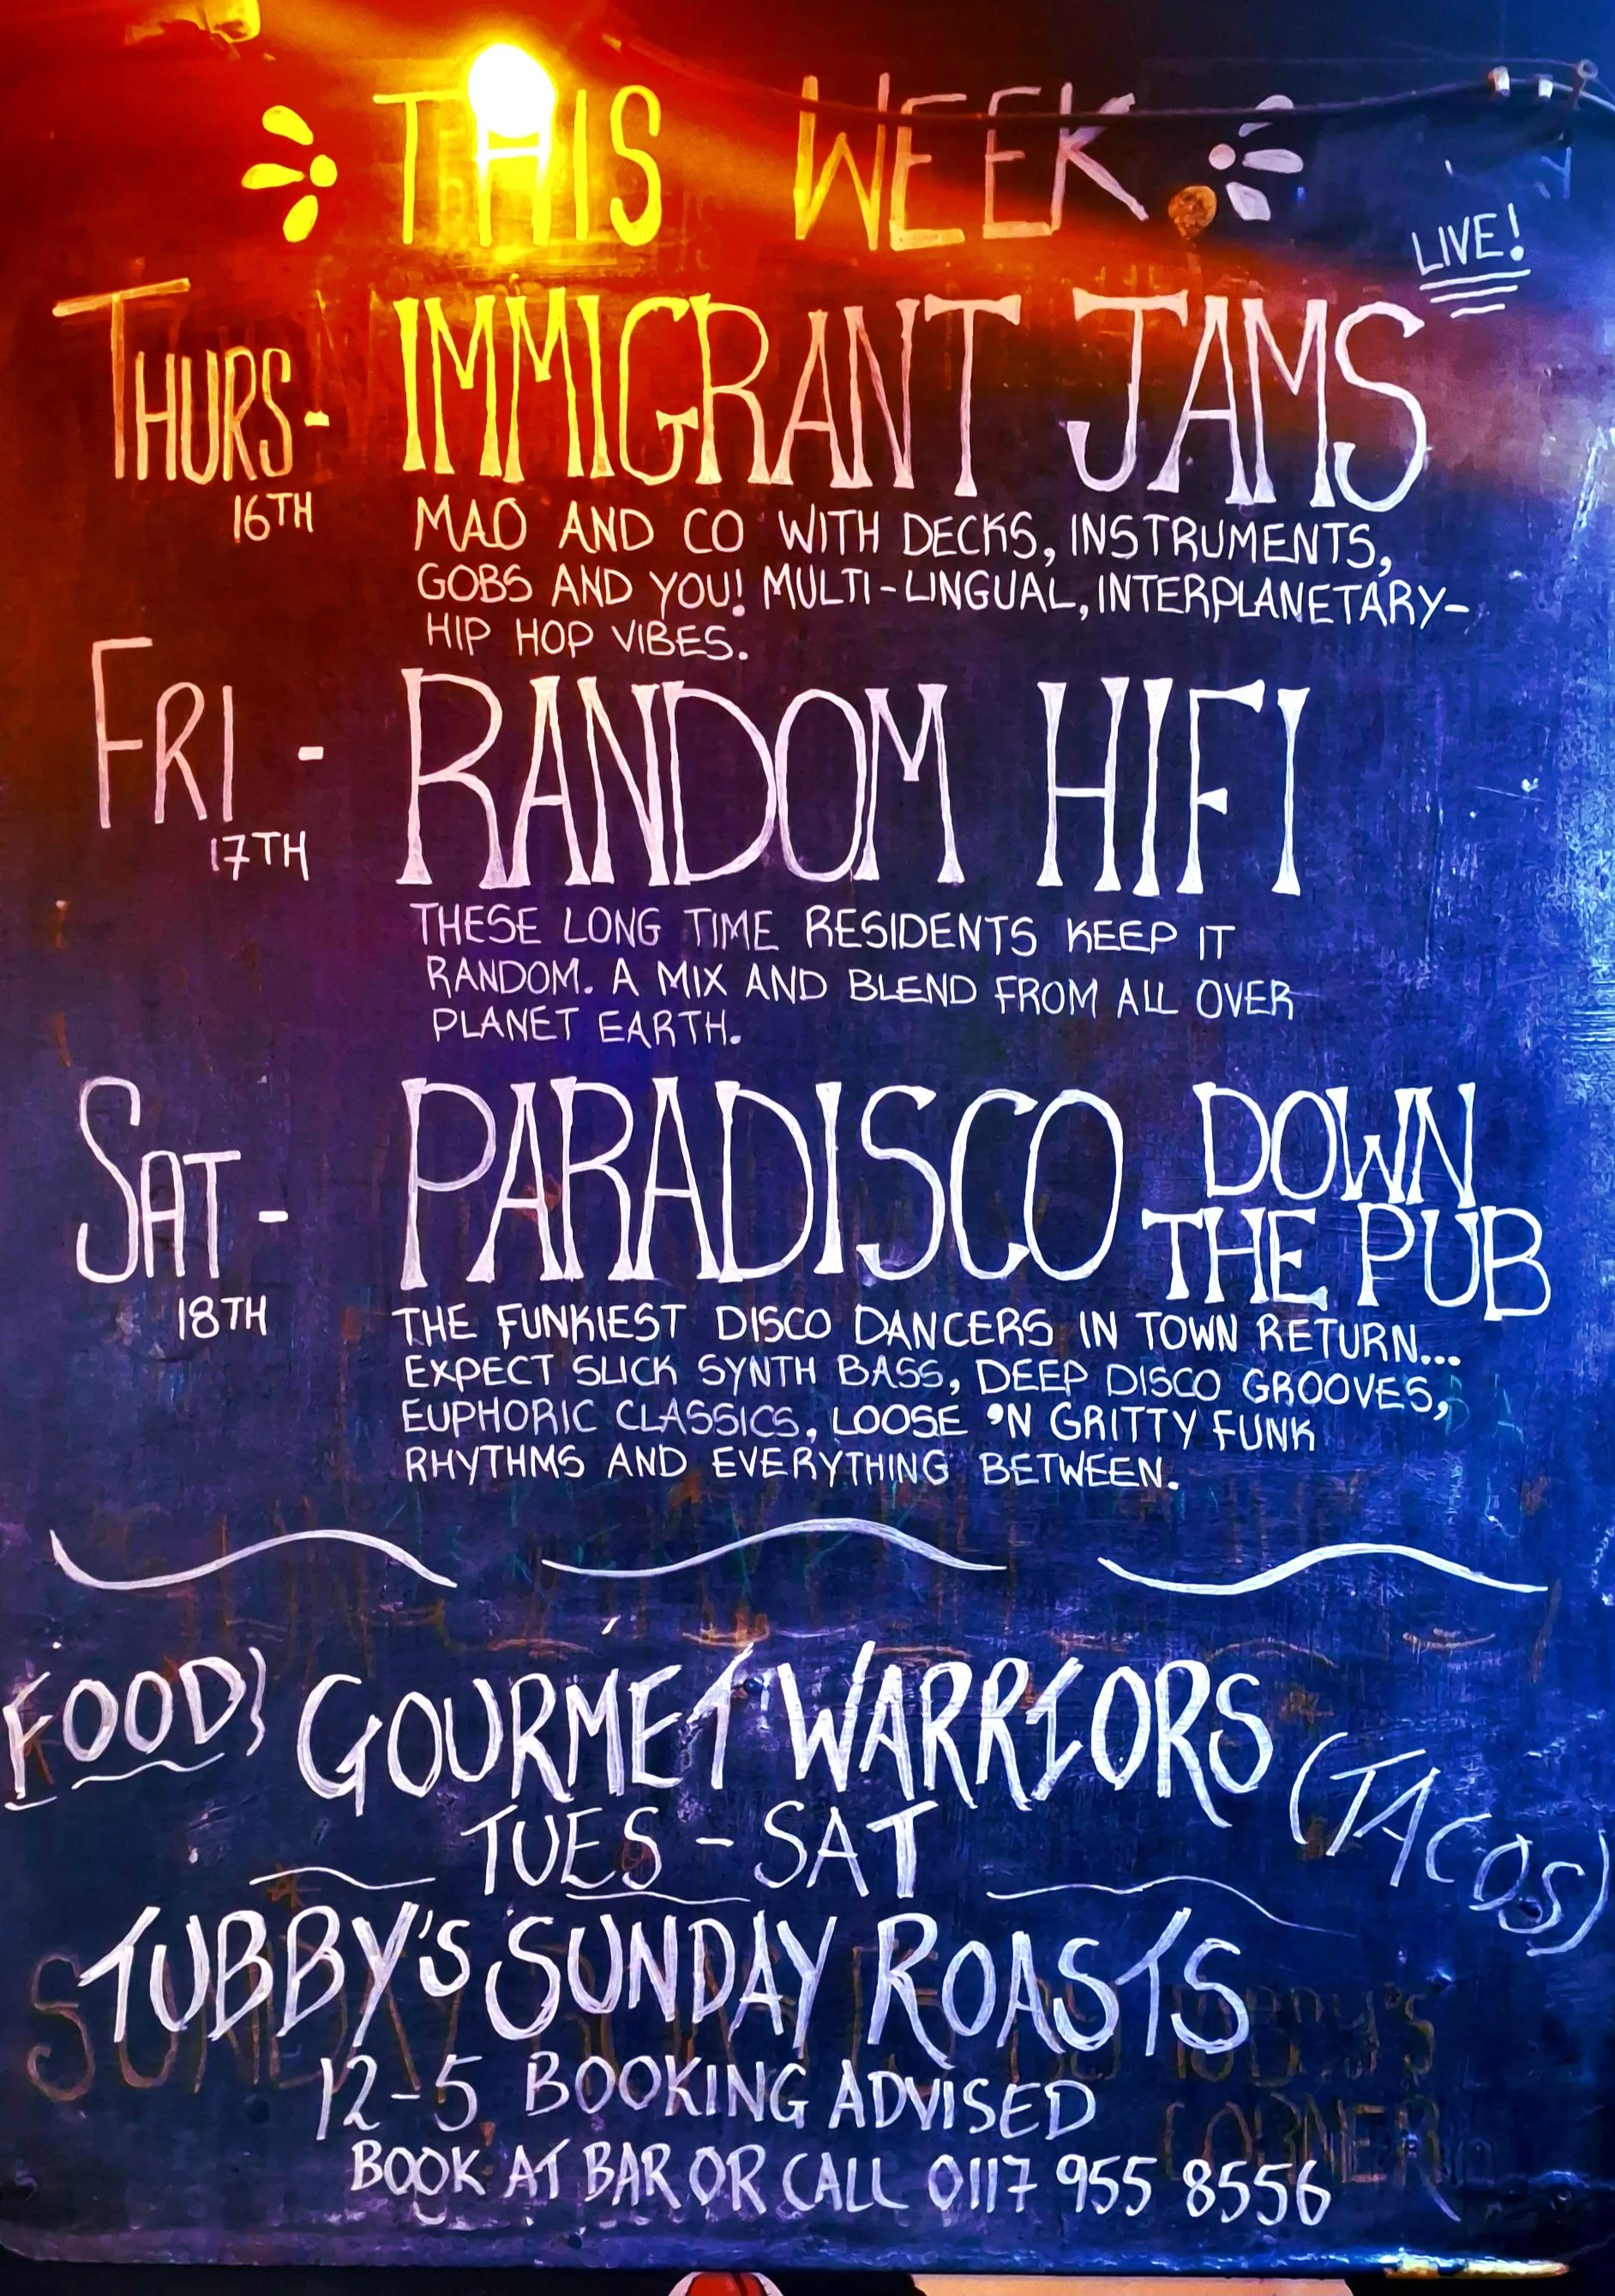 THIS WEEK
LIVE!
THURS- IMMIGRANT JAMS
16TH
MAO AND CO WITH DECKS, INSTRUMENTS,
GOBS AND YOU! MULTI-LINGUAL, INTERPLANETARY-
HIP HOP VIBES.
FRI - RANDOM HIFI
17TH
THESE LONG TIME RESIDENTS KEEP IT
RANDOM. A MIX AND BLEND FROM ALL OVER
PLANET EARTH.
SAT - PARADISCO DOWN
THE PUB
18TH
THE FUNKIEST DISCO DANCERS IN TOWN RETURN...
EXPECT SLICK SYNTH BASS, DEEP DISCO GROOVES,
EUPHORIC CLASSICS, LOOSE 'N GRITTY FUNK
RHYTHMS AND EVERYTHING BETWEEN.
FOOD} GOURMET WARRIORS
(TACOS)
TUES - SAT
TUBBY'S SUNDAY ROASTS
12-5 BOOKING ADVISED
BOOK AT BAR OR CALL 0117 955 8556